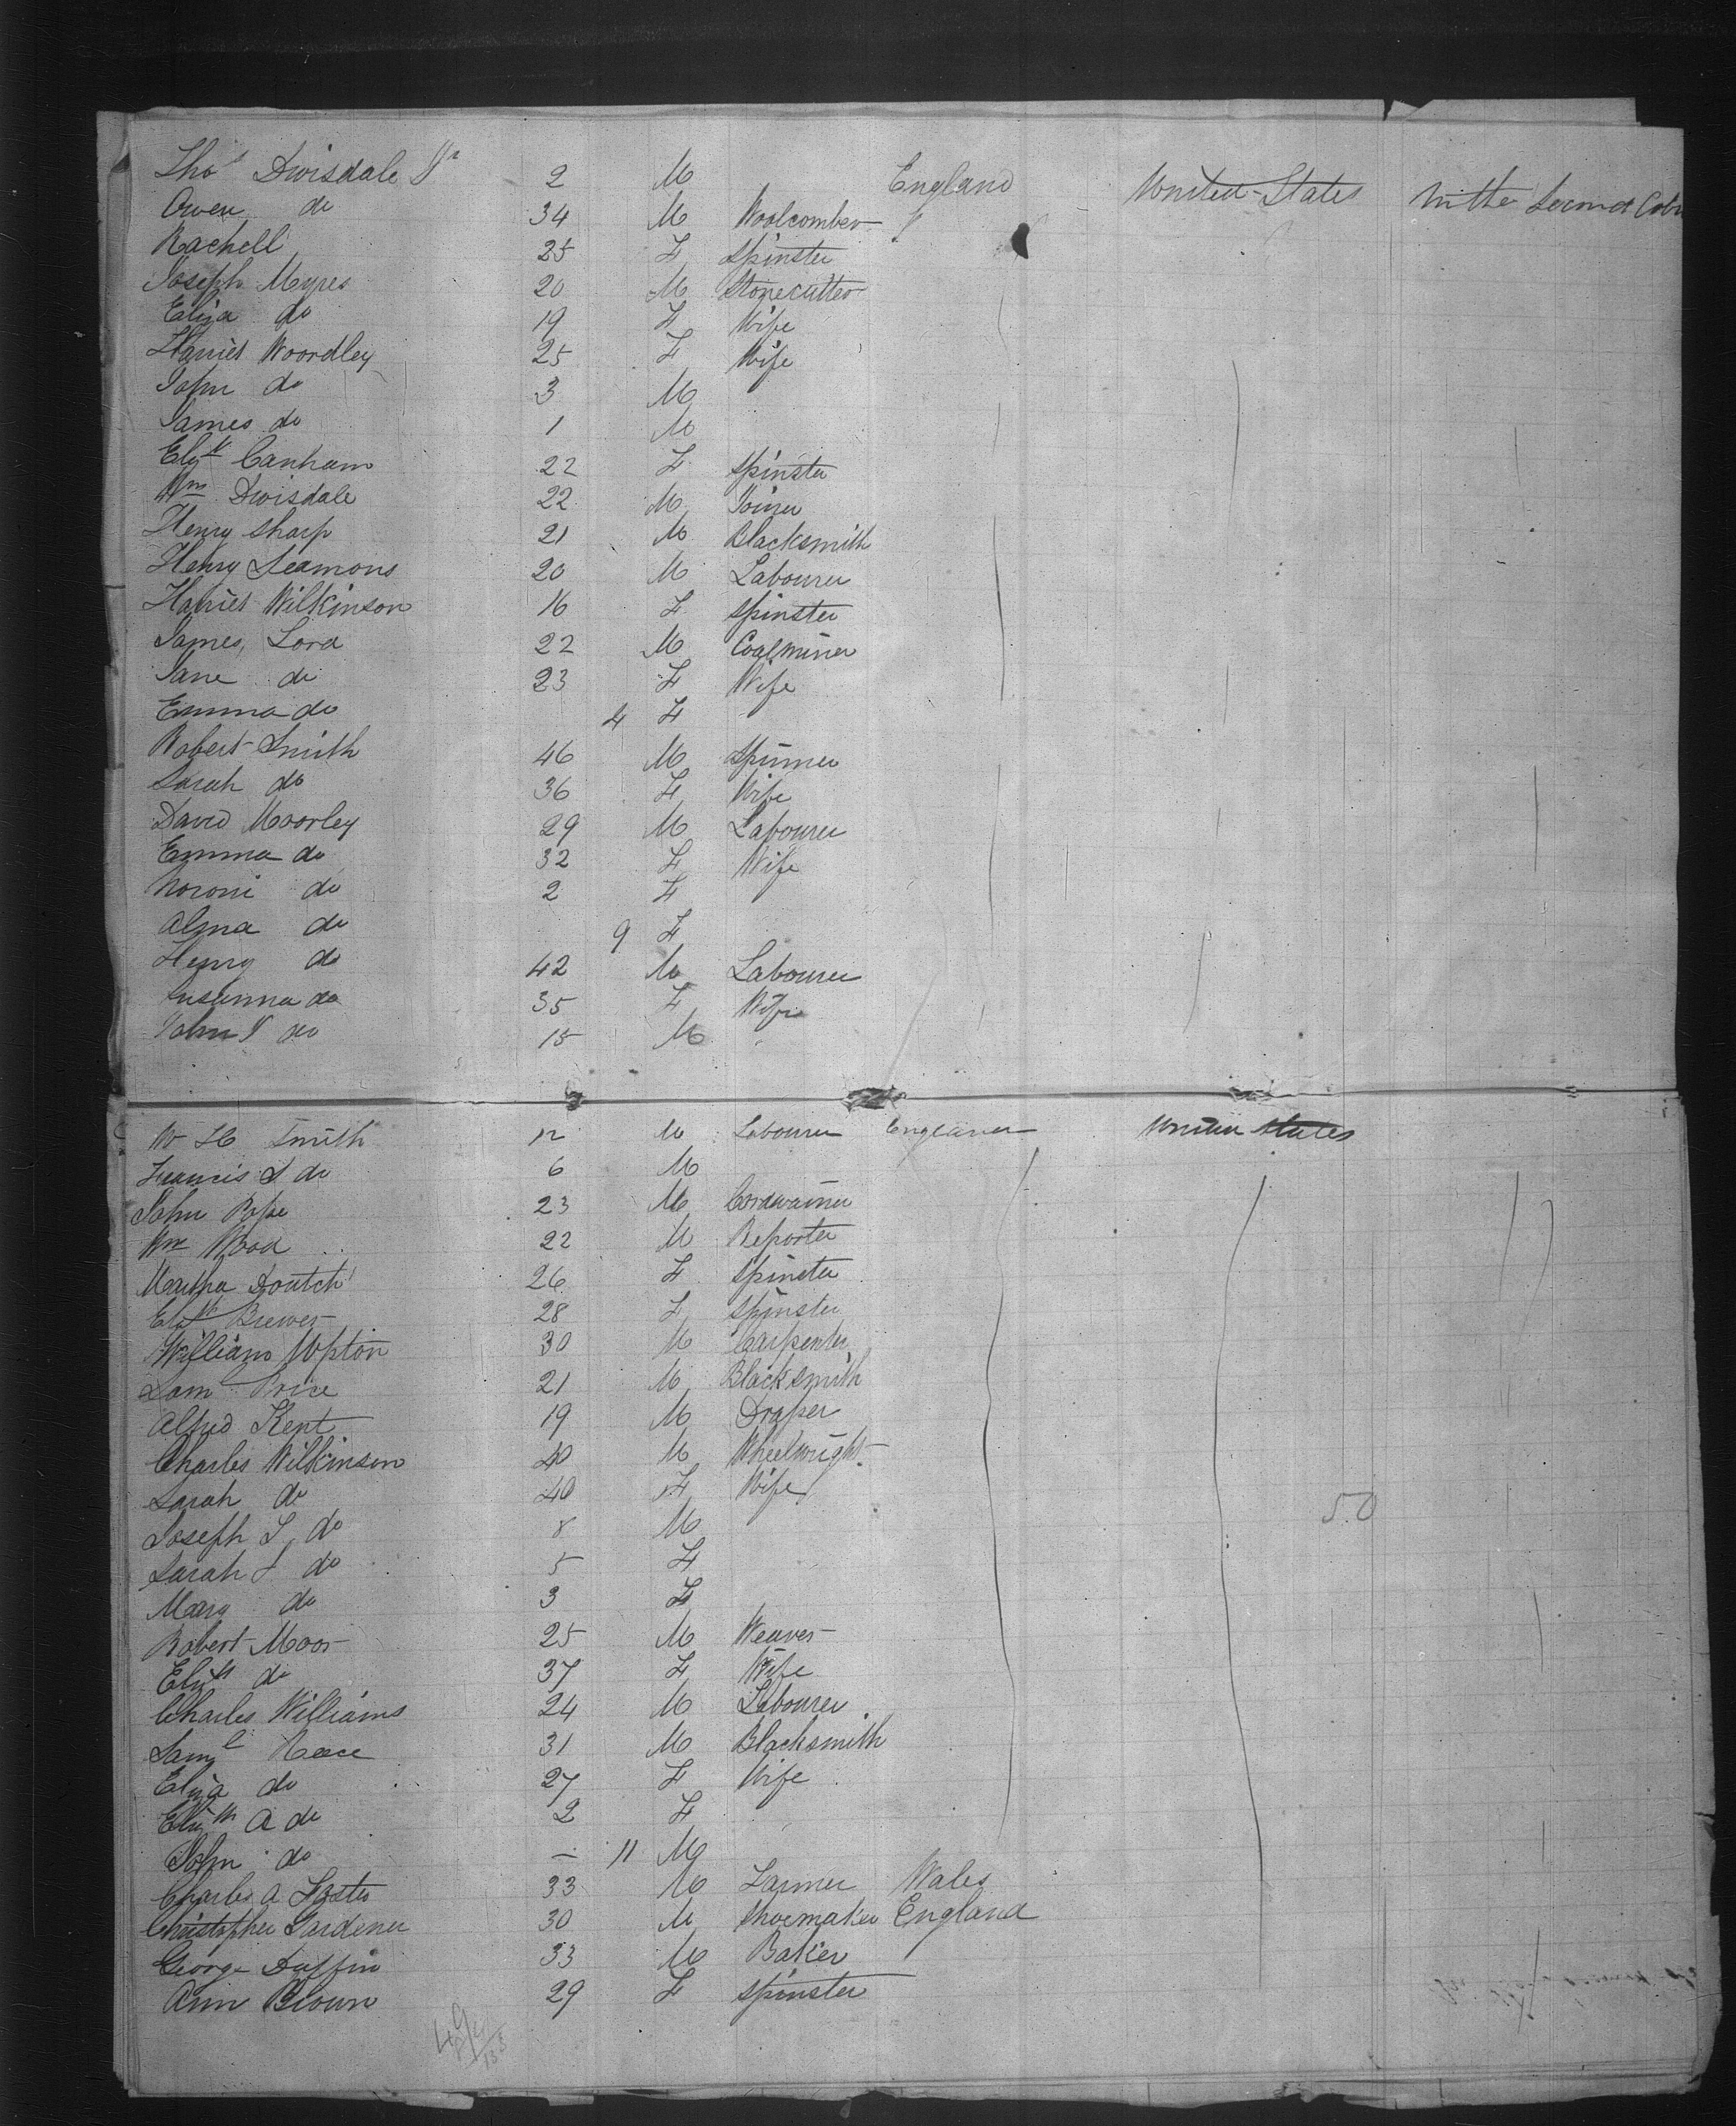 Thos Dwisdale Jr 2 M England United States In the Second Cabi
Owen do 34 M Woolcomber
Rachell 25 F Spinster
Joseph Myres 20 M Stonecutter
Eliza do 19 F Wife
Harriet Woordley 25 F Wife
John do 3 M
James do 1 M
Elizth Canham 22 F Spinster
Wm Dwisdale 22 M Joiner
Henry Sharp 21 M Blacksmith
Henry Seamons 20 M Labourer
Harriet Wilkinson 16 F Spinster
James Lord 22 M Coalminer
Jane do 23 F Wife
Emma do 4 F
Robert Smith 46 M Spinner
Sarah do 36 F Wife
David Moorley 29 M Labourer
Emma do 32 F Wife
Noroni do 2 F
Alma do 9 F
Henry do 42 M Labourer
Susanna do 35 F Wife
John J do 15 M
W H Smith 12 M Labourer England United States
Francis S do 6 M
John Pope 23 M Cordwainer
Wm Wood 22 M Reporter
Martha Doutch 26 F Spinster
Elizth Brewer 28 F Spinster
William Upton 30 M Carpenter
Sam Price 21 M Blacksmith
Alfred Kent 19 M Draper
Charles Wilkinson 40 M Wheelwright
Sarah do 40 F Wife
50
Joseph S do 8 M
Sarah J do 5 F
Mary do 3 F
Robert Moor 25 M Weaver
Elizth do 37 F Wife
Charles Williams 24 M Labourer
Saml Reece 31 M Blacksmith
Eliza do 27 F Wife
Elizth A do 2 F
John do — 11 M
Charles A Foster 33 M Farmer Wales
Christopher Gardener 30 M Shoemaker England
George Duffin 33 M Baker
Ann Brown 29 F Spinster